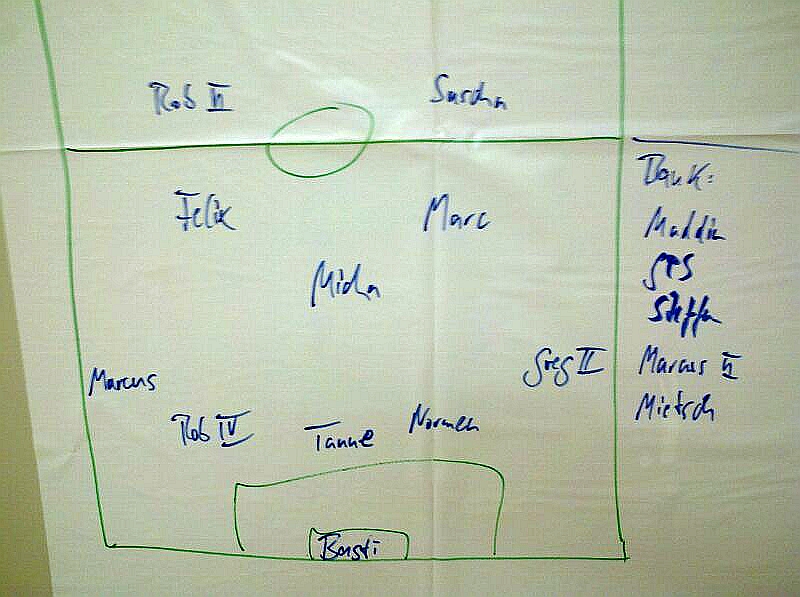 Rob II Sascha
Bank:
Felix Marc
Maddin
Micha
Steffen
Greg II
Marcus II
Marcus
Mietsch
Rob IV Tanne Normen
Basti